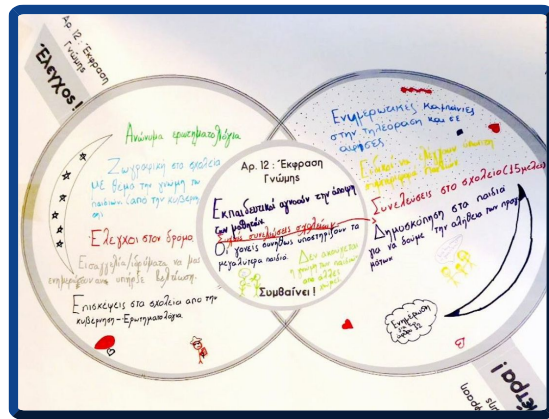 Αρ. 12 : Έκφραση
Γνώμης
Έλεγχος!
Ανώνυμα ερωτηματολόγια
Ζωγραφική στο σχολείο
με θέμα την γνώμη των
παιδιών (από την κυβέρνη
ση)
Έλεγχοι στον δρόμο
να μας
ενημερώσουν αν υπήρξε βελτίωση.
Επισκέψεις στα σχολεία από την
κυβέρνηση - Ερωτηματολόγια
Αρ. 12 : Έκφραση
Γνώμης
Εκπαιδευτικοί αγνοούν την άποψη
των μαθητών.
συνελεύσεις σχολείων
Οι γονείς συνήθως υποστηρίζουν τα
μεγαλύτερα παιδιά.
Δεν ακούγεται
η γνώμη των παιδιών
από άλλες
χώρες
Συμβαίνει!
Ενημερωτικές καμπάνιες
στην τηλεόραση και σε
αφίσες
Ειδικοί να ελέγχουν
Συνελεύσεις στο σχολείο (15μελές)
Δημοσκόπηση στα παιδιά
για να δούμε την αλήθεια των πραγ
μάτων
Ενημέρωση
για το
άρθρο 12